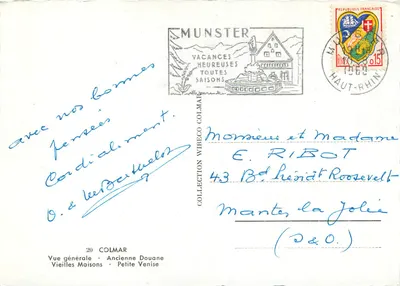 MUNSTER
VACANCES
HEUREUSES
TOUTES
SAISONS
0,15
HAUT-RHIN
avec nos bonnes
pensées
Cordialement.
COLLECTION WIBECO COLMAR
Monsieur et Madame
E. RIBOT
43 Bd Président Roosevelt
Mantes la Jolie
(S&O).
20 COLMAR
Vue générale - Ancienne Douane
Vieilles Maisons - Petite Venise